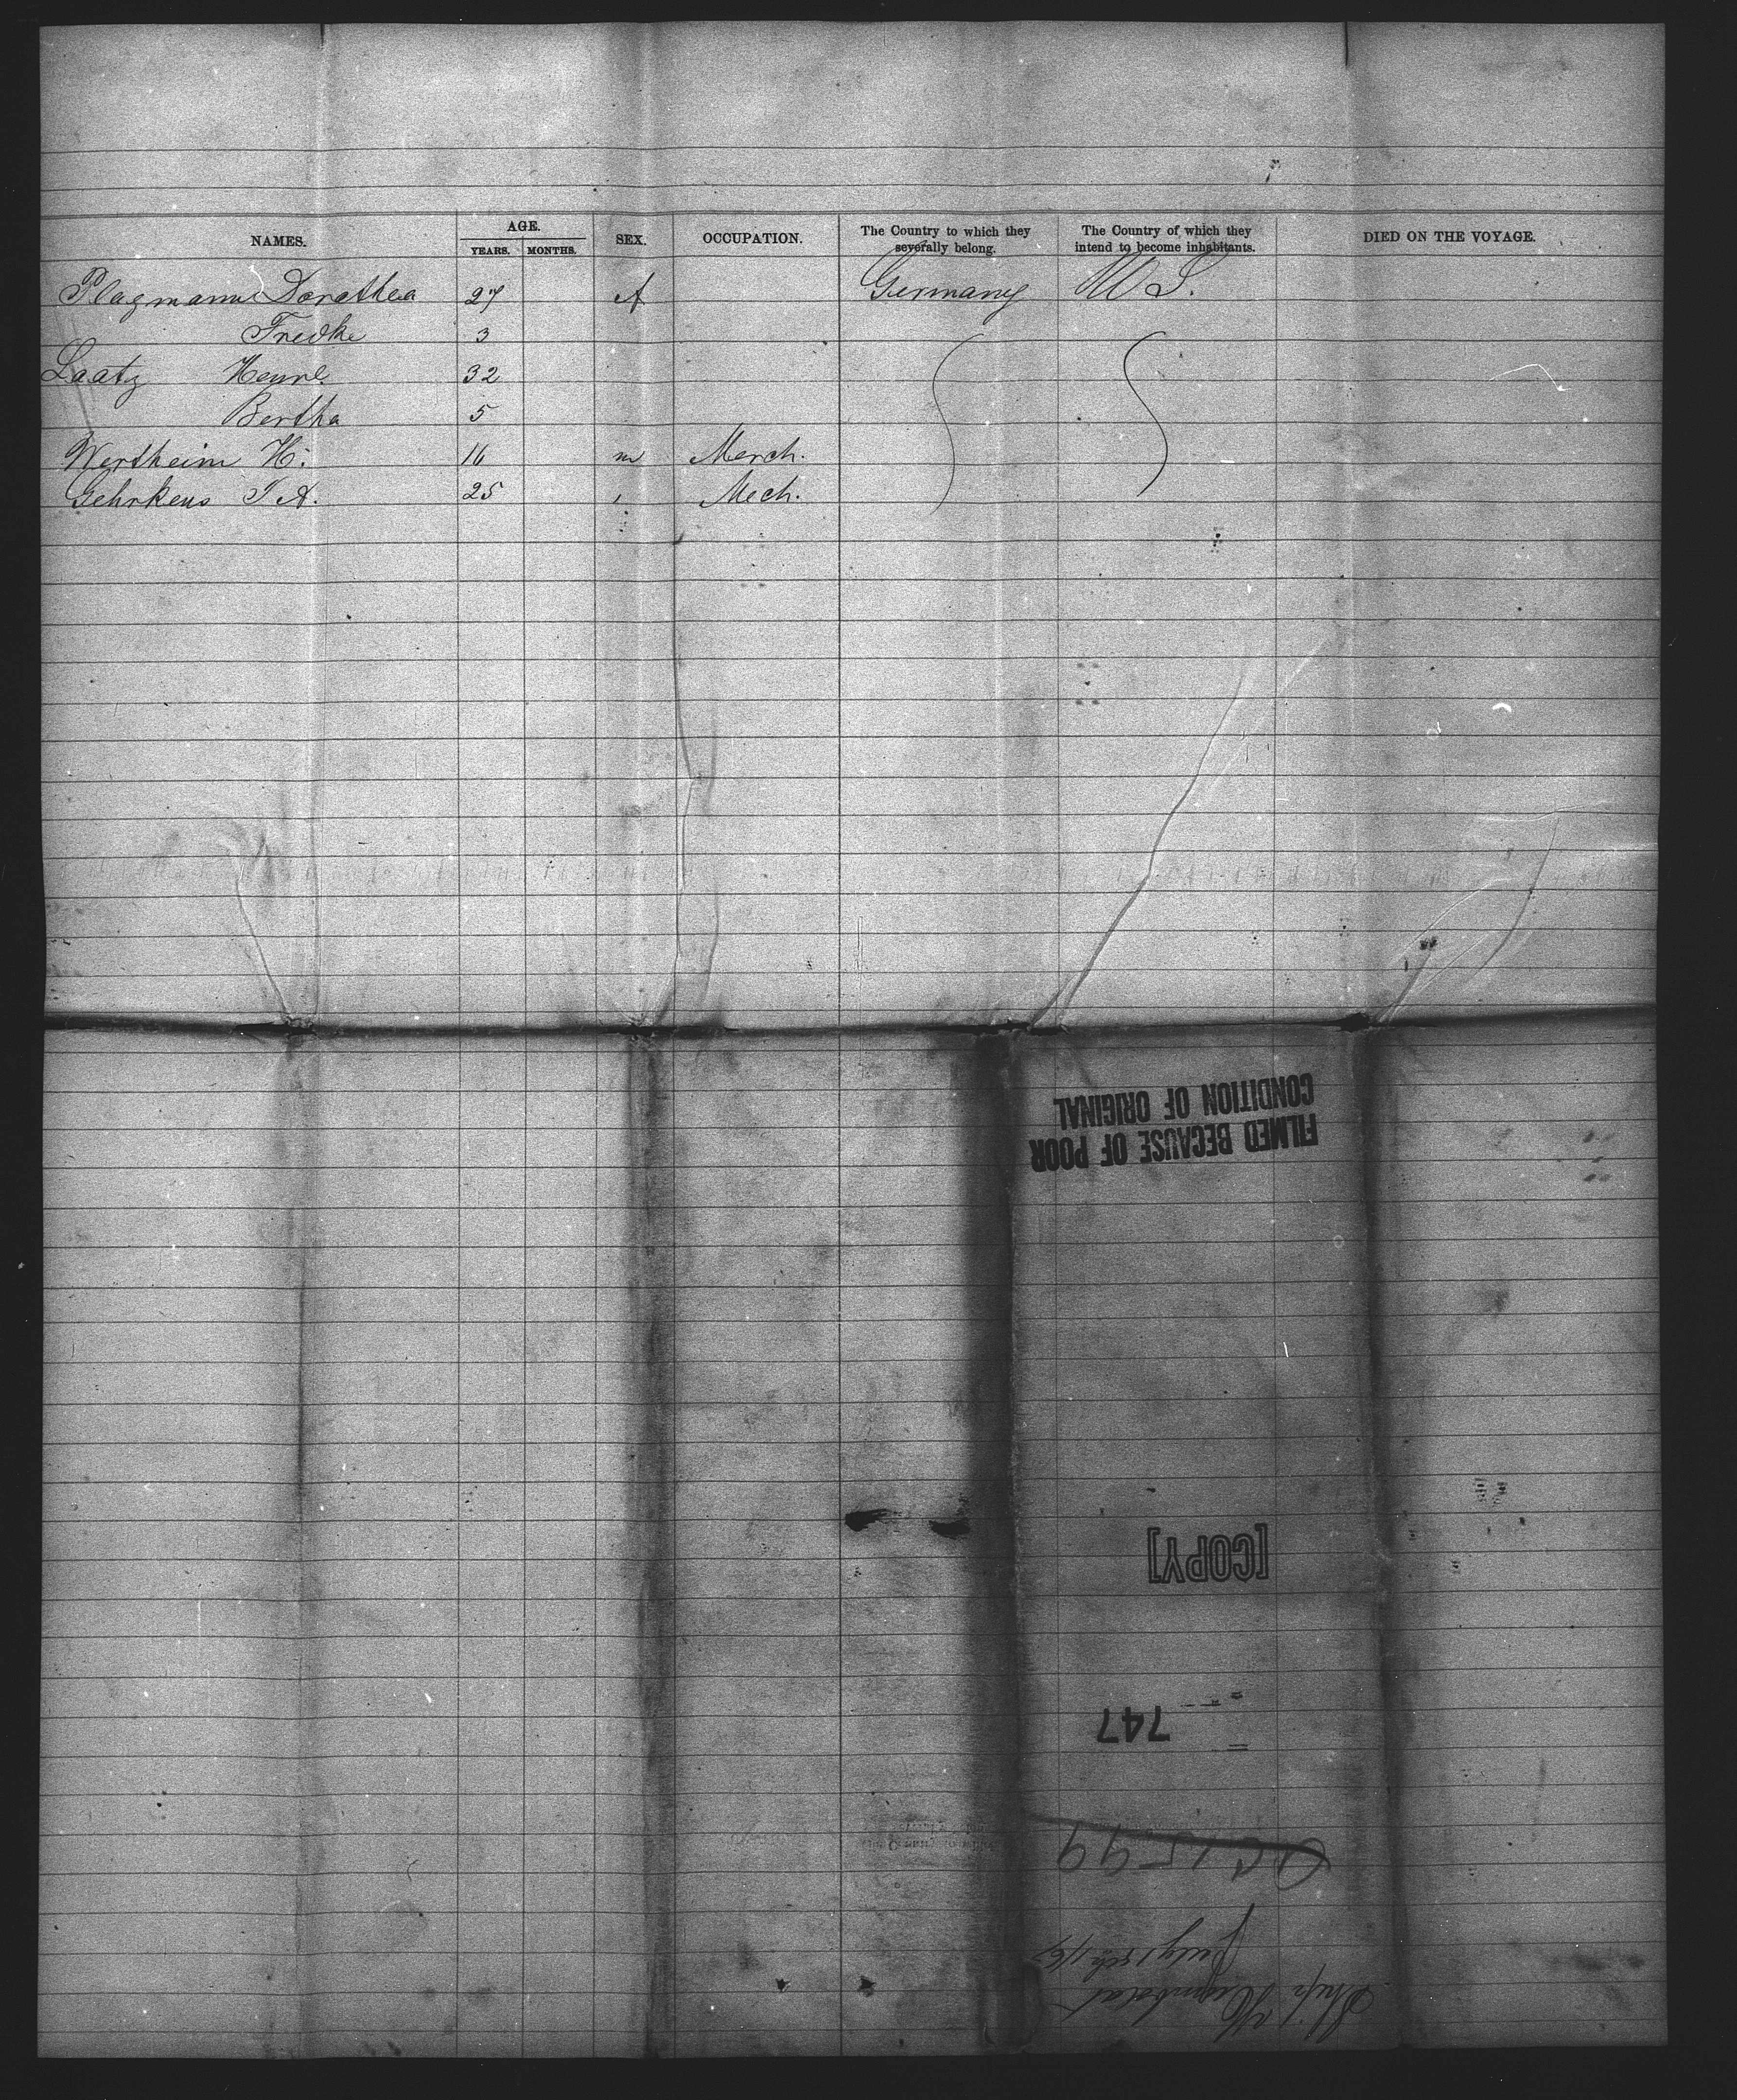 NAMES. AGE. YEARS. MONTHS. SEX. OCCUPATION. The Country to which they severally belong. The Country of which they intend to become inhabitants. DIED ON THE VOYAGE.
Plagmann Dorothea 27 f Germany U S.
Fredke 3
Laatz Henrl. 32
Bertha 5
Wertheim H: 16 m Merch.
Gehrkens J A. 25 Mech.
FILMED BECAUSE OF POOR
CONDITION OF ORIGINAL
[COPY]
747
Ship Humboldt
July